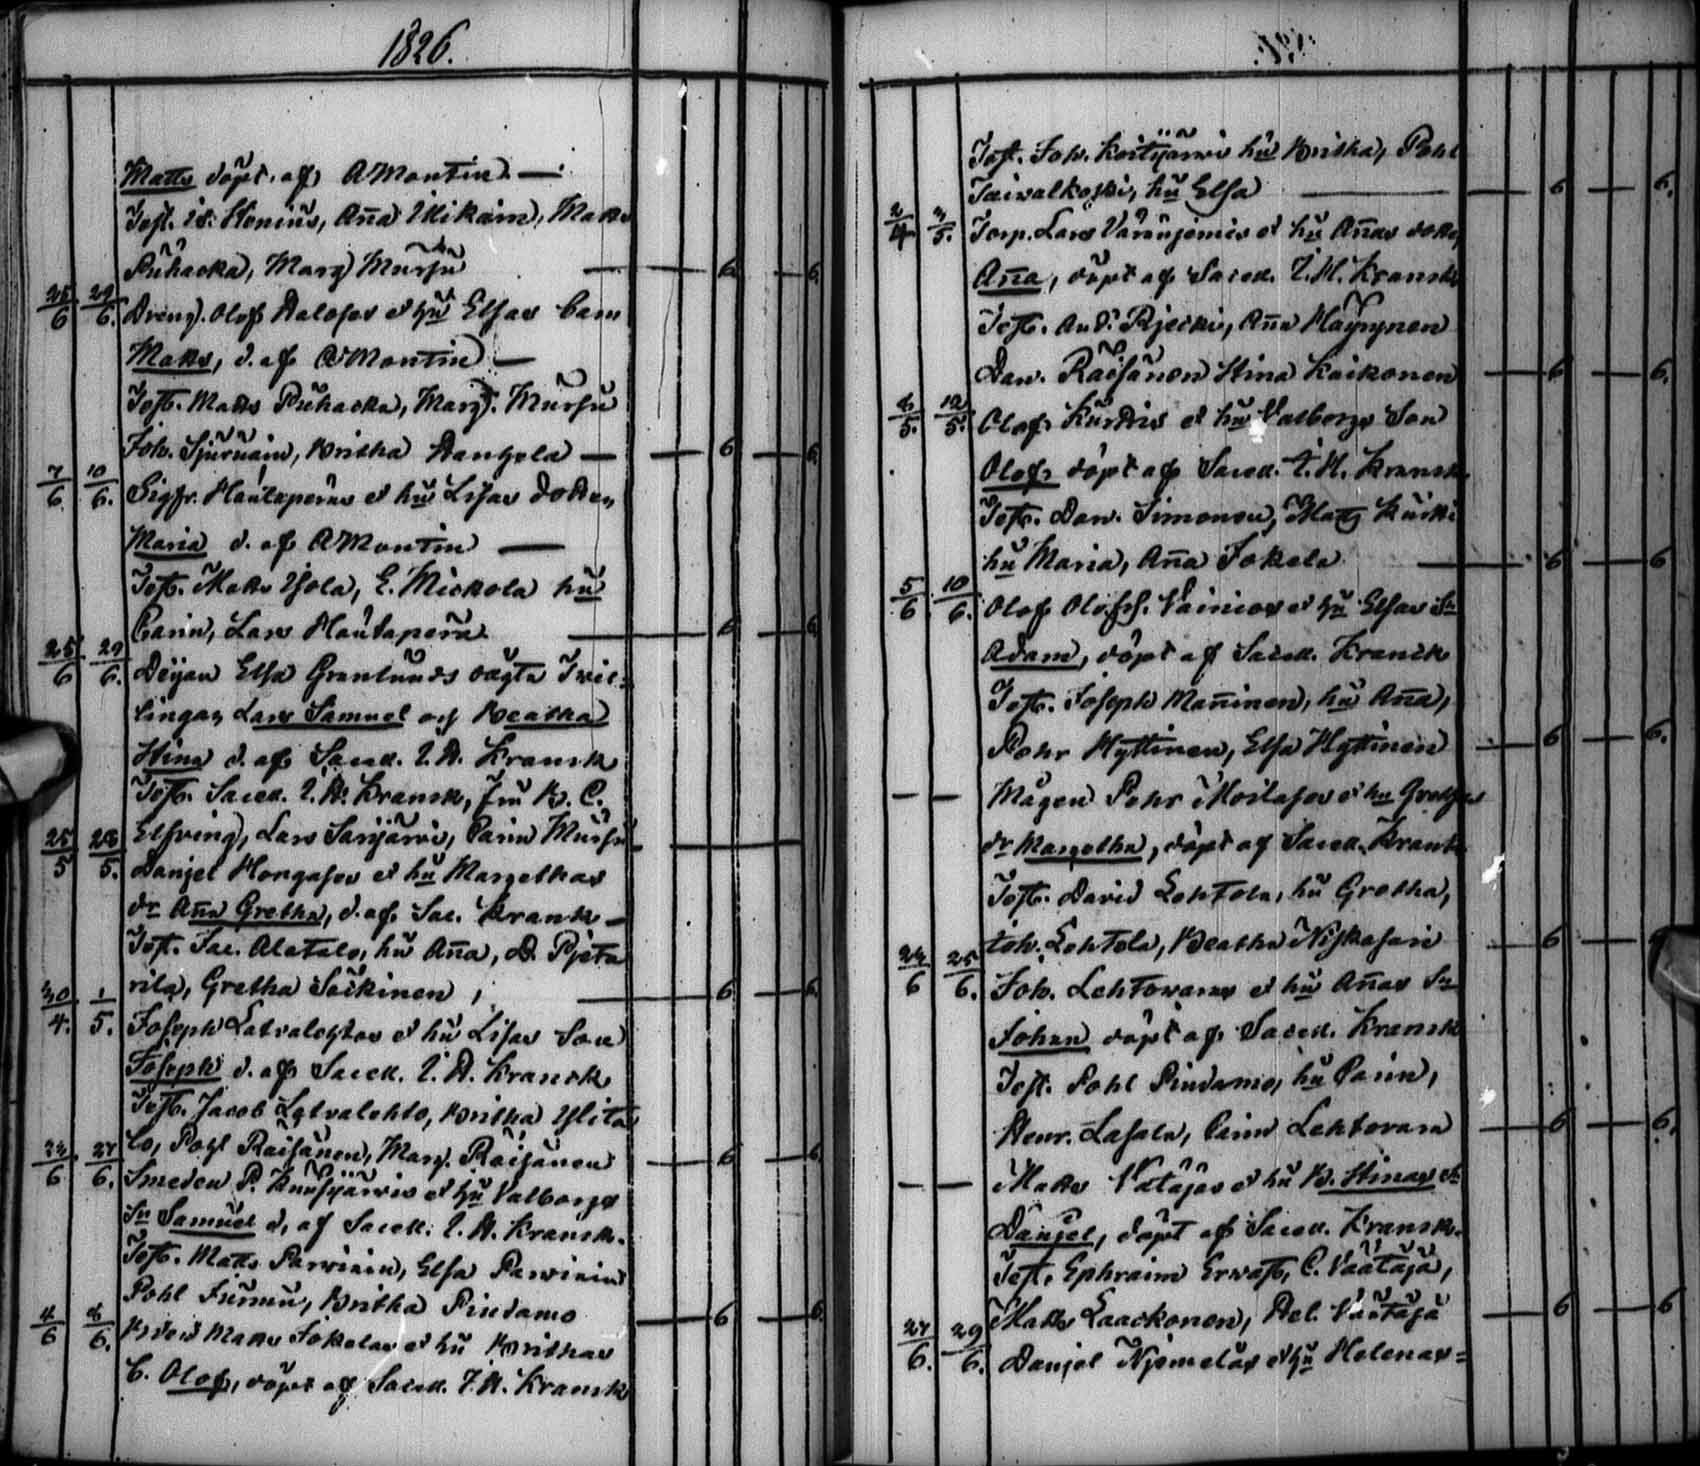 1826.
Matts döpt. af A Montin —
Test. Is. Honius, Aña Mikain, Matts
Puhacka, Marg Mursu — 6 — 6
25/6 29/6. Dreng. Olof Halosos et hu Elsas barn
Matts, d. af A Montin —
Test. Matts Puhacka, Marg. Mursu
Joh. Sjuruain, Britha Hangela — 6 — 6
7/6 10/6. Sigfr. Hautaperas et hu Lisas dotter,
Maria d. af A Montin —
Test. Matts Ysola, E. Mickola hu
Carin, Lars Hautapera — 6 — 6
25/6 29/6. Dejan Elsa Granlunds oägta Twil=
lingar, Lars Samuel och Beatha
Stina d. af Sacell. I. H. Kranck
Test. Sacell. I. H. Kranck, fru B. C.
Elfving, Lars Sarijärwi, Carin Mursu
25/5 28/5. Danjel Hongasos et hu Margethas
dr Aña Gretha, d. af Sac. Kranck —
Test. Jac. Alatalo, hu Aña, D. Pjeta
rila, Gretha Säckinen — 6 — 6
30/4. 1/5. Joseph Latvalehtos et hu Lisas Son
Joseph d. af Sacell. I. H. Kranck
Test. Jacob Latvalehto, Britha Ylita
lo, Pohl Räisänen, Marg. Räisänen — 6 — 6
24/6 27/6. Smeden P. Kuusijärwis et hu Valborgs
Sn Samuel d. af Sacell. I. H. Kranck.
Test. Matts Parwiain, Elsa Parwiain
Pohl Jurmu, Britha Pindamo — 6 — 6
4/6 6/6. Matts Jokelas et hu Brithas
b. Olof, döpt af Sacell. I. H. Kranck
Test. Joh. Koitijarwi hu Britha, Pohl
Taiwalkoski, hu Elsa — 6 — 6.
2/4 3/5. Torp. Lars Väräinjemis et hu Añas dotter
Aña, döpt af Sacell. I. H. Kranck
Test. And. Pjecki, Aña Häyrynen
Dan. Räisänen Stina Kaikonen — 6 — 6.
6/5. 12/5. Olof Kurkis et hu Valborgs Son
Olof döpt af Sacell. I. H. Kranck
Test. Dan. Simonen, Matts Kurki
hu Maria, Aña Jokela — 6 — 6
5/6 10/6. Olof Olofss. Vainios et hu Elsas Sn
Adam, döpt af Sacell. Kranck
Test. Joseph Mañinen, hu Aña,
Petter Hyttinen, Elsa Hyttinen — 6 — 6.
— — Mågen Petter Moilasos et hu Grethas
dr Margetha, döpt af Sacell. Kranck
Test. David Lehtola, hu Gretha,
Joh. Lehtola, Beatha Niskasari — 6
24/6 25/6. Joh. Lehtowaras et hu Añas Sn
Johan döpt af Sacell. Kranck
Test. Pohl Pindamo, hu Carin,
Henr. Lasala, Carin Lehtovara — 6 — 6.
— — Matts Vätäjas et hu B. Stinas Sn
Danjel, döpt af Sacell. Kranck.
Test, Ephraim Erwast, C. Väätäjä,
Matts Laackonen, Hel. Väätäjä — 6 — 6
27/6. 29/6. Danjel Njemeläs et hu Helenas=